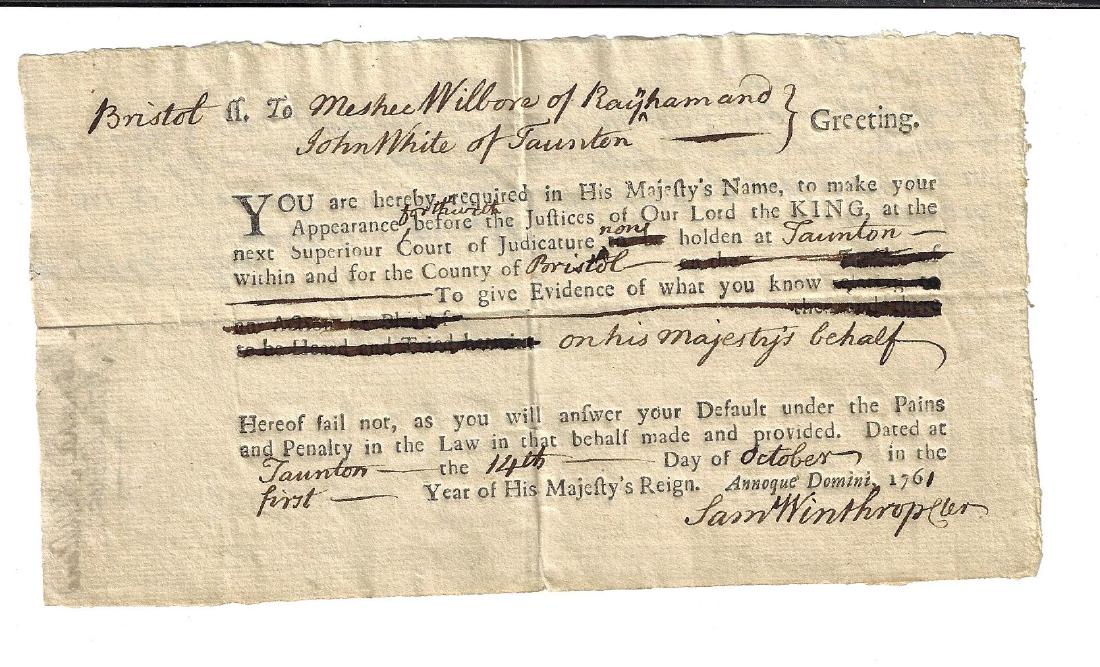 Bristol ſſ. To Meshec Wilbore of Raynham and
John White of Taunton } Greeting.
YOU are hereby required in His Majeſty's Name, to make your
Appearance forthwith before the Juſtices of Our Lord the KING, at the
next Superiour Court of Judicature now holden at Taunton
within and for the County of Bristol
To give Evidence of what you know
on his Majesty's behalf
Hereof fail not, as you will anſwer your Default under the Pains
and Penalty in the Law in that behalf made and provided. Dated at
Taunton the 14th Day of October in the
first Year of His Majeſty's Reign. Annoque Domini, 1761
Saml Winthrop Cler